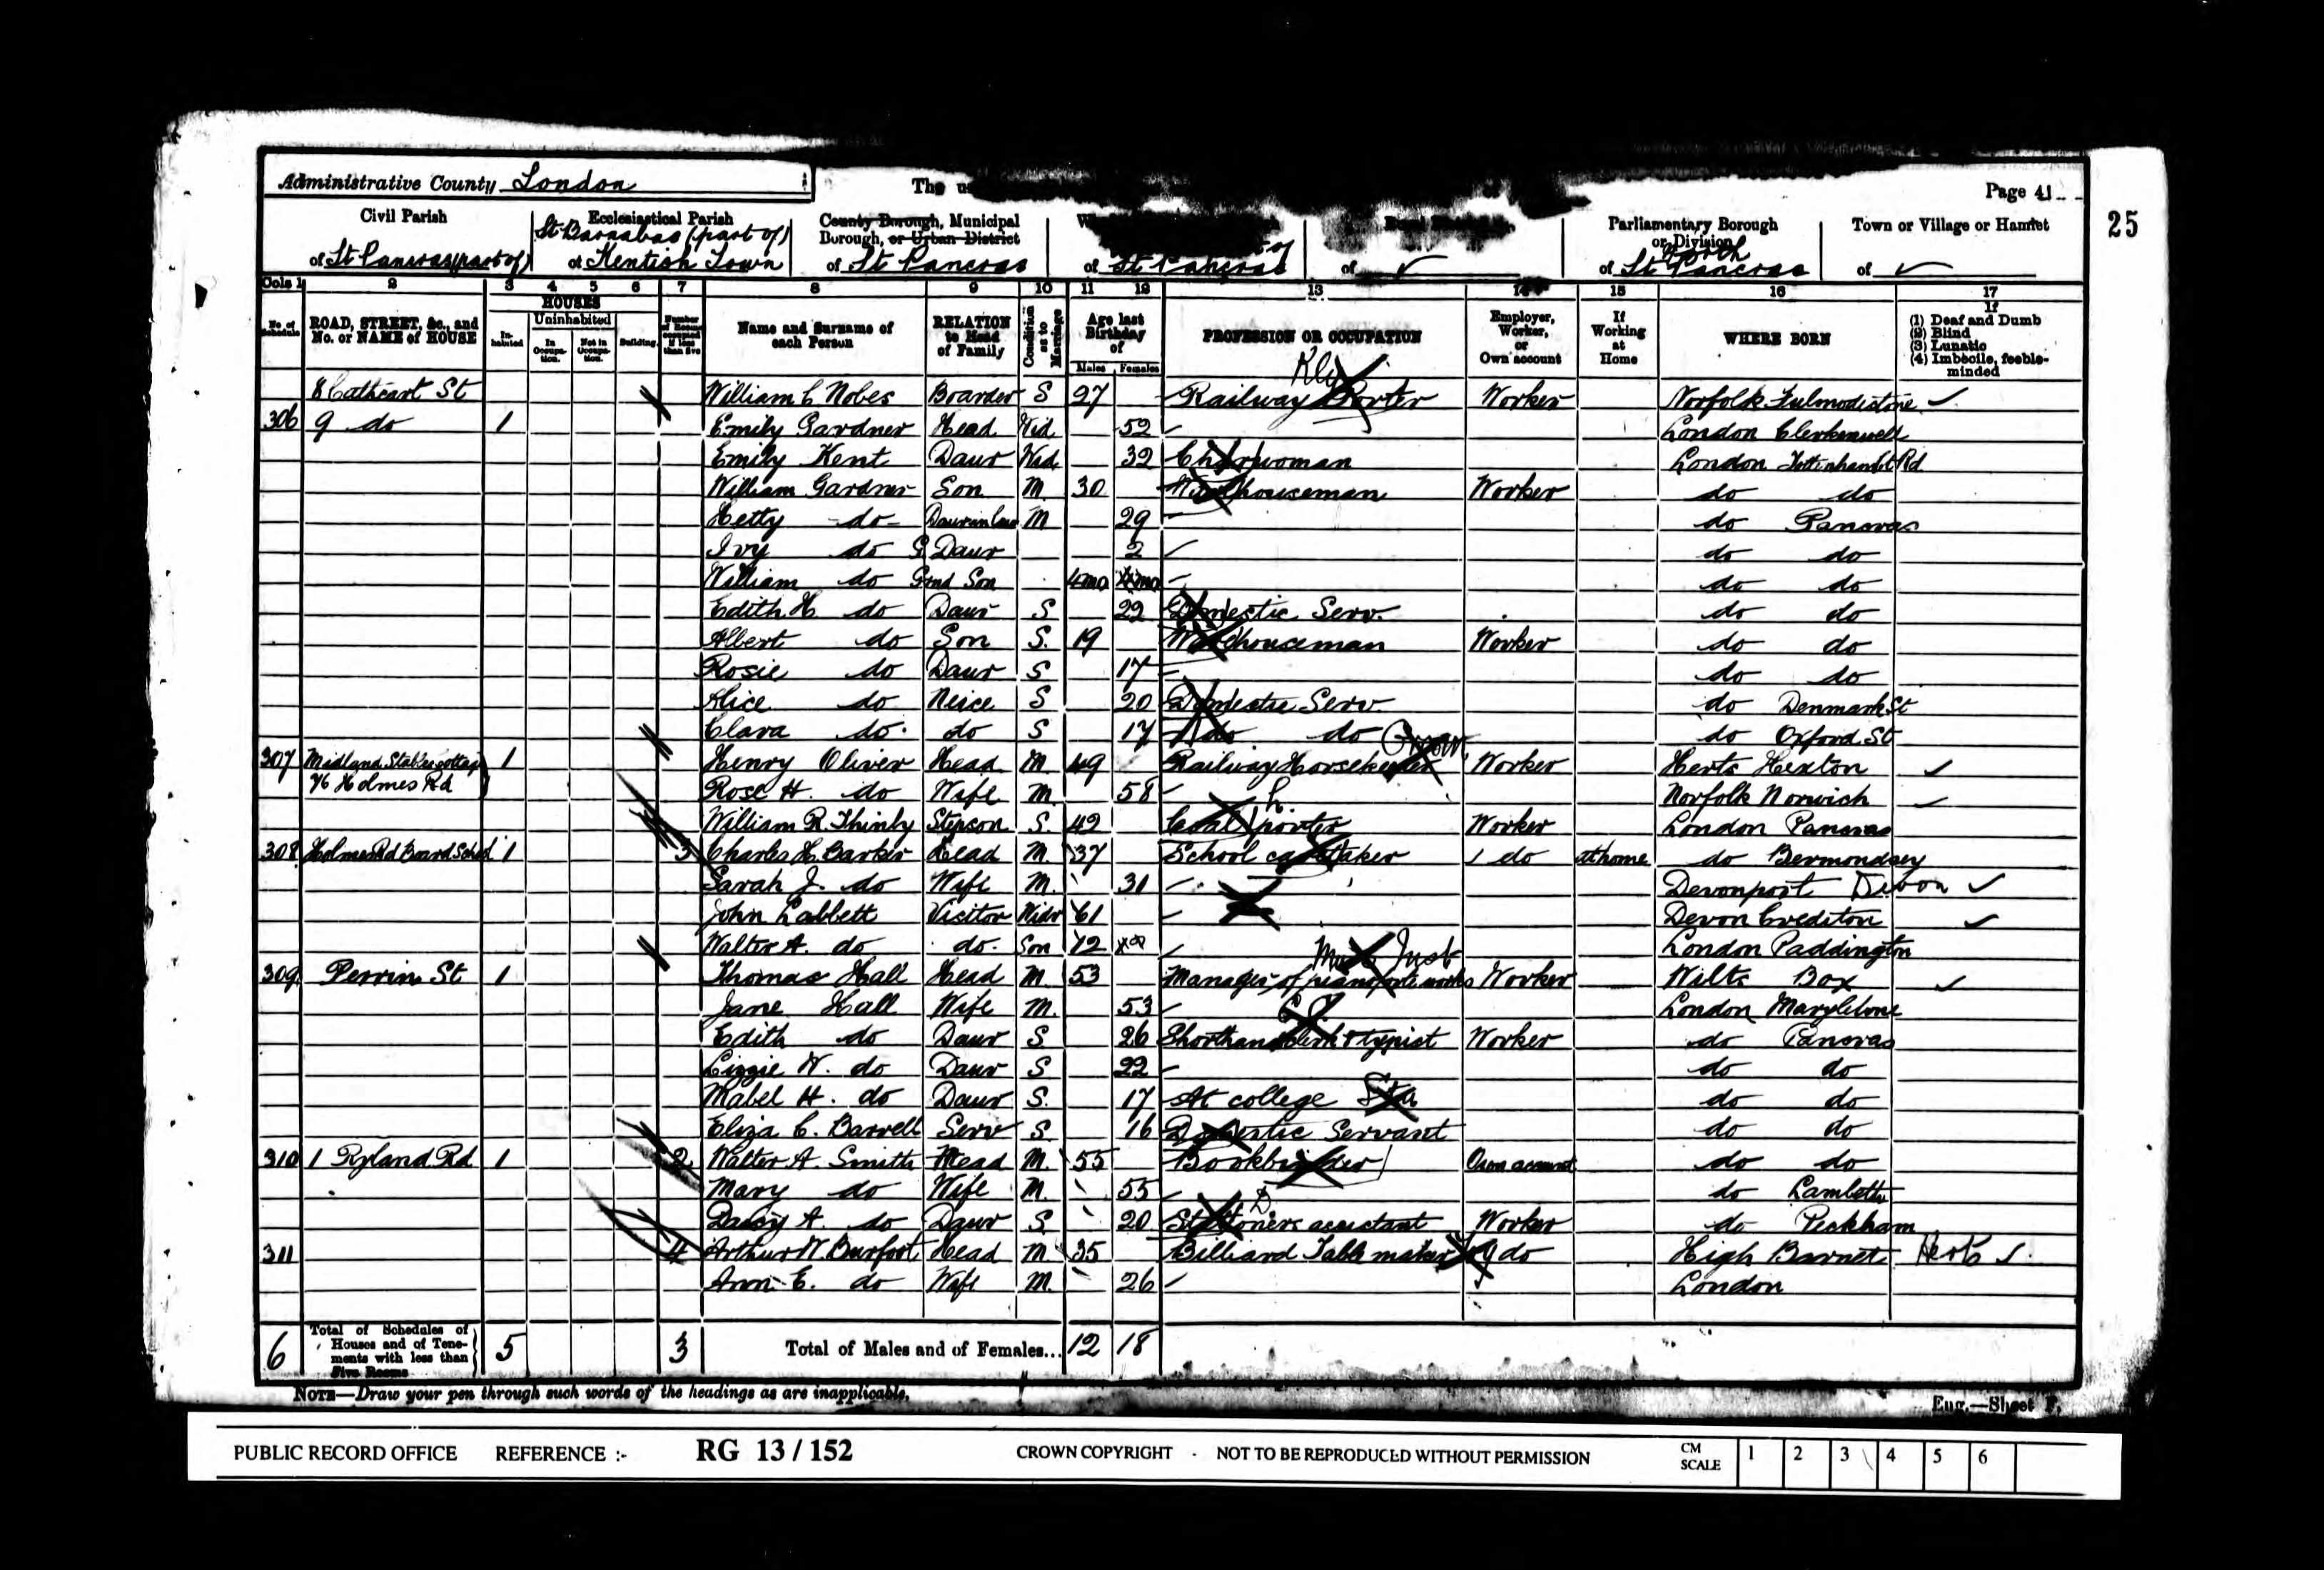 Administrative County London
The
Page 41
25
Civil Parish
of St Pancras (part of)
Ecclesiastical Parish
St Barnabas (part of)
of Kentish Town
County Borough, Municipal
Borough, or Urban District
of St Pancras
of St Pancras
of ✓
Parliamentary Borough
or Division
North
of St Pancras
Town or Village or Hamlet
of ✓
Cols 1 2 3 4 5 6 7 8 9 10 11 12 13 14 15 16 17
No. of Schedule
ROAD, STREET, &c., and
No. or NAME of HOUSE
HOUSES
In-habited
Uninhabited
In Occupa-tion.
Not in Occupa-tion.
Building.
Number of Rooms occupied if less than five
Name and Surname of
each Person
RELATION
to Head
of Family
Condition as to Marriage
Age last
Birthday
of
Males Females
PROFESSION OR OCCUPATION
Employer,
Worker,
or
Own account
If
Working
at
Home
WHERE BORN
If
(1) Deaf and Dumb
(2) Blind
(3) Lunatic
(4) Imbecile, feeble-
minded
8 Cathcart St William C Nobes Boarder S 27 Railway Porter Worker Norfolk Fulmodestone ✓
306 9 do 1 Emily Gardner Head Wid 52 London Clerkenwell
Emily Kent Daur Wid 32 Charwoman London Tottenham Ct Rd
William Gardner Son M 30 Warehouseman Worker do do
Hetty do Daurinlaw M 29 do Pancras
Ivy do G Daur 2 do do
William do Grnd Son 4mo do do
Edith H. do Daur S 22 Domestic Serv. do do
Albert do Son S. 19 Warehouseman Worker do do
Rosie do Daur S 17 do do
Alice do Neice S 20 Domestic Serv. do Denmark St
Clara do do S 17 do do do Oxford St
307 Midland Stables Cottage 1 Henry Oliver Head M. 49 Railway Horsekeeper Groom Worker Herts Hexton ✓
76 Holmes Rd Rose H. do Wife M. 58 Norfolk Norwich ✓
William R. Thinby Stepson S. 42 Coal porter Worker London Pancras
308 Holmes Rd Board School 1 3 Charles H. Barker Head M. 37 School caretaker do at home do Bermondsey
Sarah J. do Wife M. 31 Devonport Devon ✓
John Labbett Visitor Widr 61 Devon Crediton ✓
Walter A. do do. Son 12 London Paddington
309 Perrin St 1 Thomas Hall Head M. 53 Manager of pianoforte works Worker Wilts Box ✓
Jane Hall Wife M. 53 London Marylebone
Edith do Daur S 26 Shorthand Clerk & typist Worker do Pancras
Lizzie W. do Daur S 22 do do
Mabel H. do Daur S. 17 At college do do
Eliza C. Barrell Serv S. 16 Domestic Servant do do
310 1 Ryland Rd 1 2 Walter A. Smith Head M. 55 Bookbinder Own account do do
Mary do Wife M. 55 do Lambeth
Daisy A. do Daur S 20 Stationers assistant Worker do Peckham
311 4 Arthur W. Burfoot Head M 35 Billiard Table maker do High Barnet Herts ✓
Ann E. do Wife M. 26 London
6 Total of Schedules of
Houses and of Tene-
ments with less than
Five Rooms
5 3 Total of Males and of Females... 12 18
NOTE—Draw your pen through such words of the headings as are inapplicable.
Eng.—Sheet F.
PUBLIC RECORD OFFICE REFERENCE :- RG 13 / 152 CROWN COPYRIGHT - NOT TO BE REPRODUCED WITHOUT PERMISSION CM SCALE 1 2 3 4 5 6